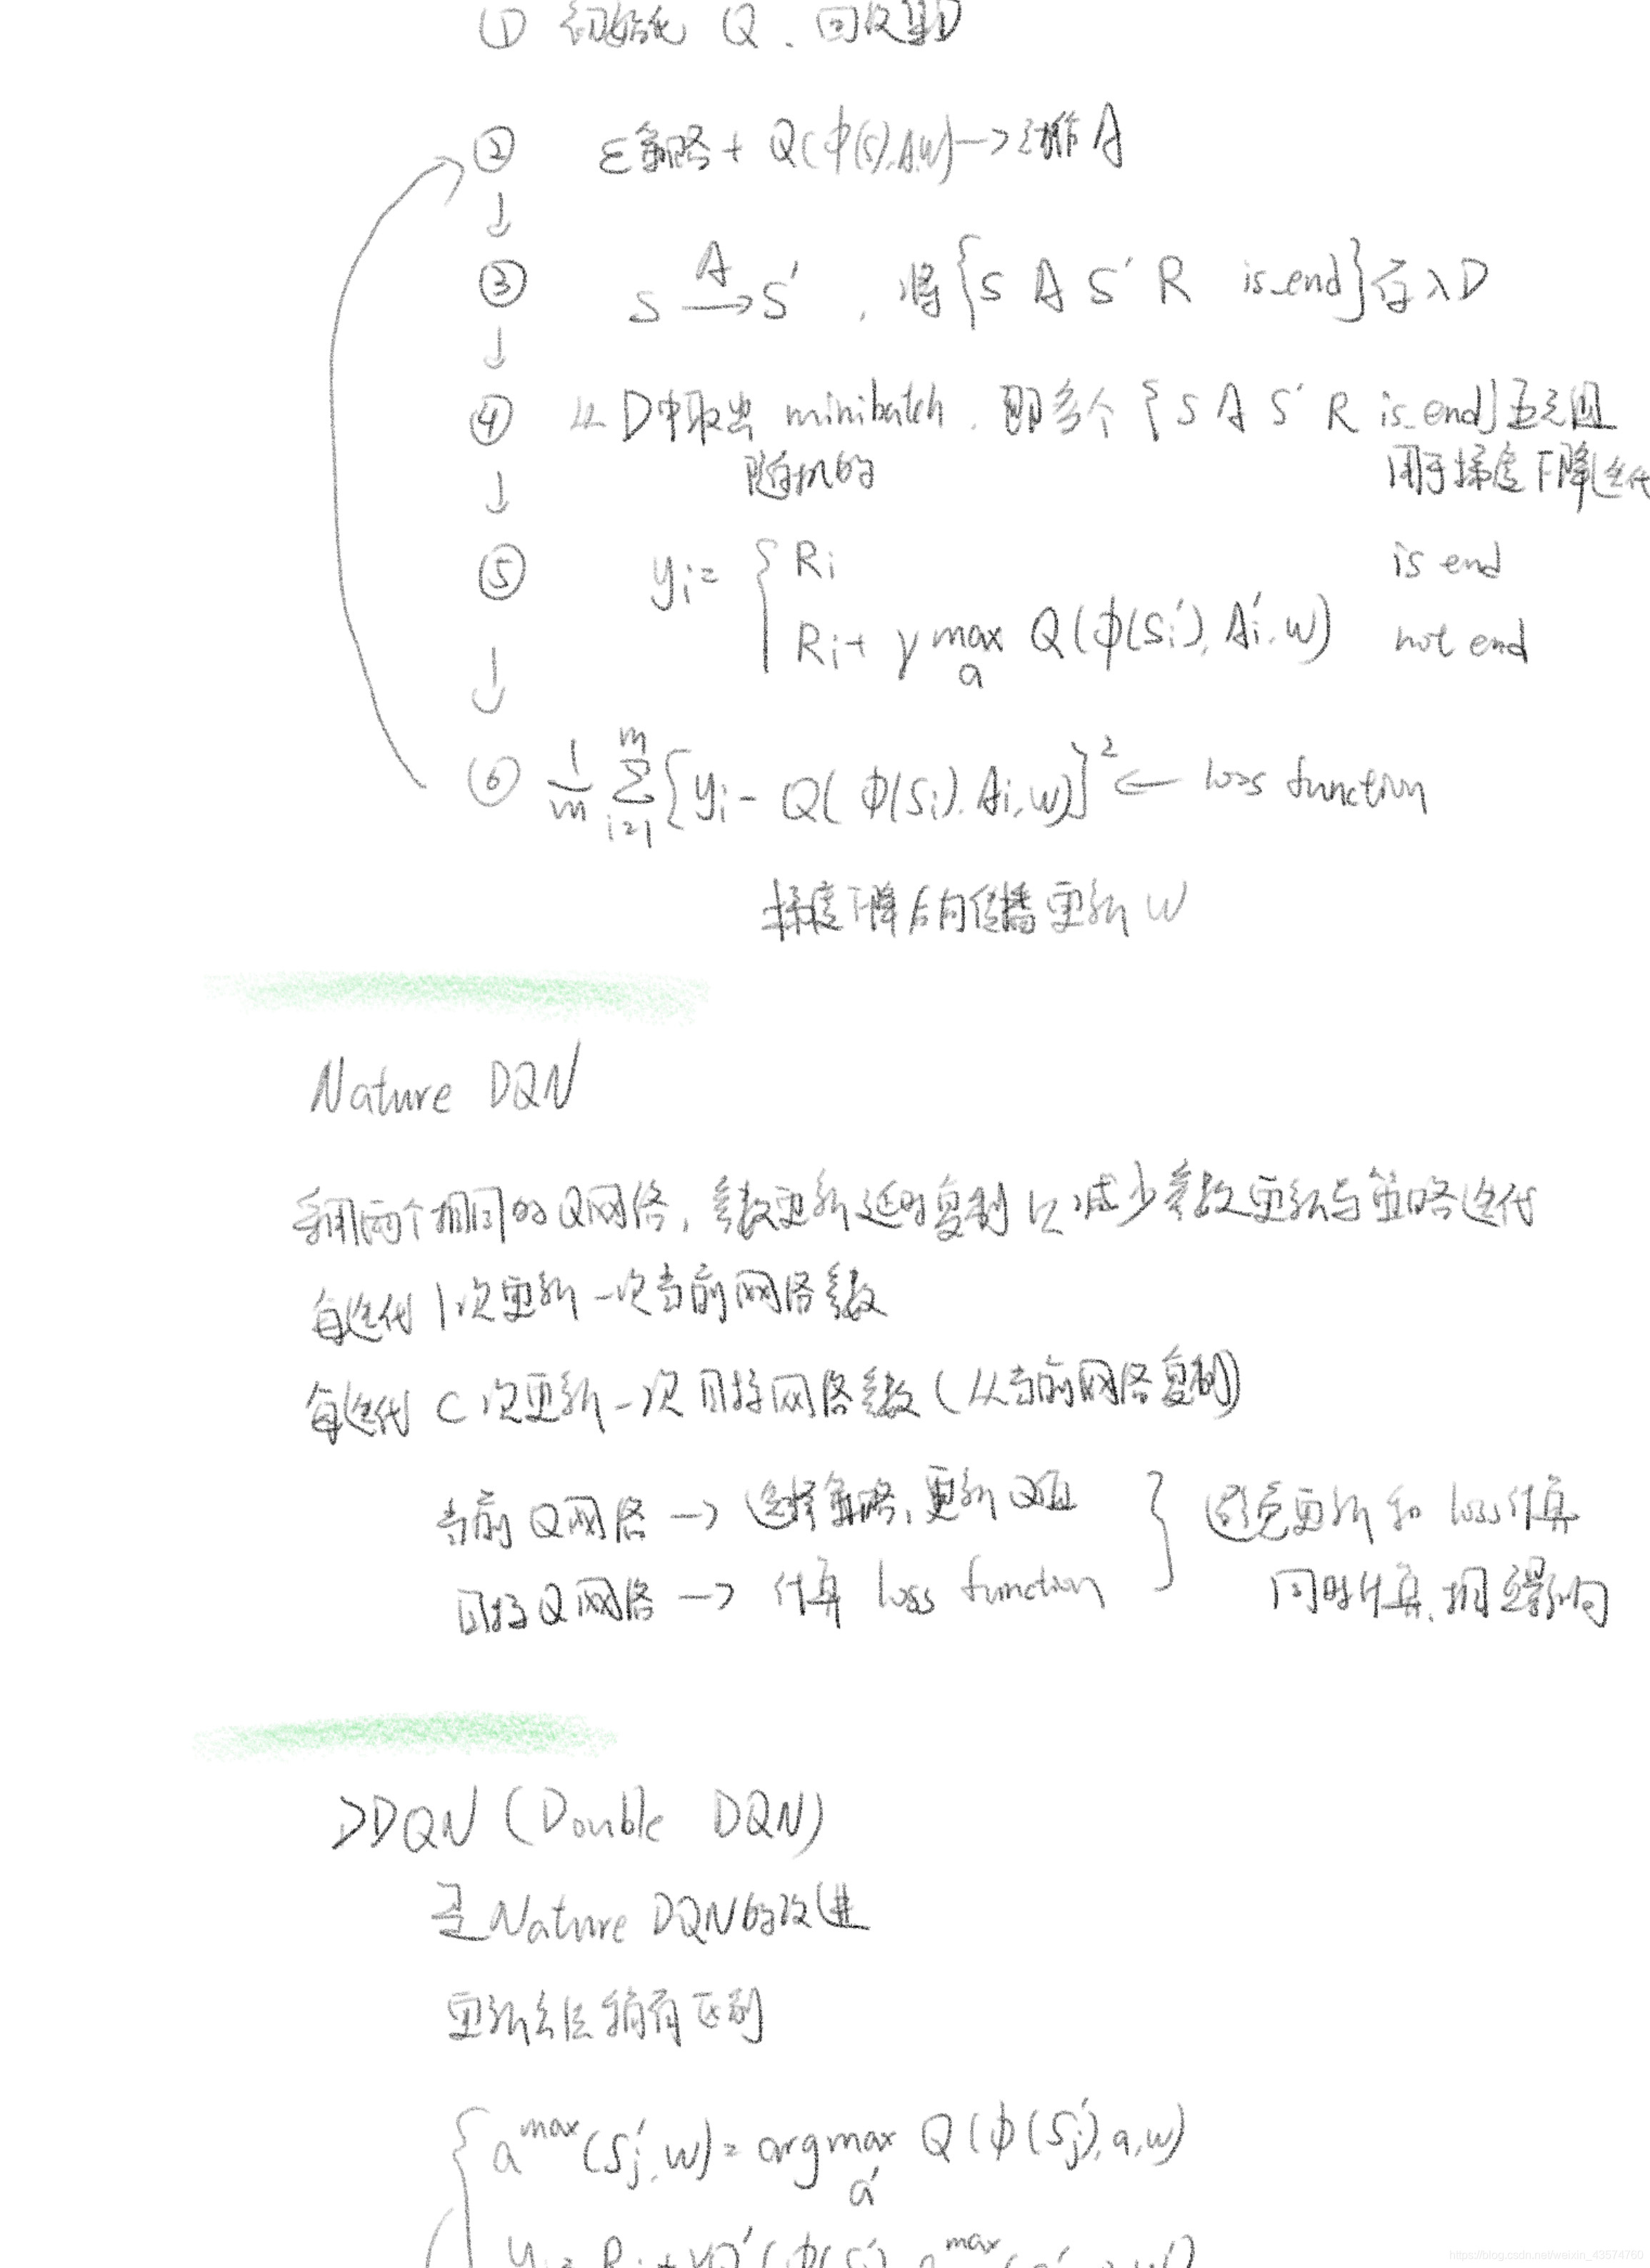 ① 初始化 Q、回放集D
② ε策略 + Q(φ(s),A,w) → 动作 A
↓
③ S A→ S′ ，将{S A S′ R is_end}存入D
↓
④ 从D中取出 minibatch，即多个{S A S′ R is_end}五元组
随机的 用于梯度下降迭代
↓
⑤ yi= { Ri is end
Ri + γ max a Q(φ(Si′), Ai′, w) not end
↓
⑥ 1/m ∑ i=1 m {yi - Q(φ(Si), Ai, w)}² ← loss function
梯度下降后向传播更新 w
Nature DQN
利用两个相同的Q网络，参数更新延时复制以减少参数更新与策略迭代
每迭代1次更新一次当前网络参数
每迭代 C 次更新一次目标网络参数(从当前网络复制)
当前Q网络 → 选择策略，更新Q值 } 避免更新和 loss计算
目标Q网络 → 计算 loss function 同时计算，相互影响
DDQN (Double DQN)
是Nature DQN的改进
更新方式稍有区别
{ a^max(Sj′, w) = argmax a′ Q(φ(Sj′), a, w)
https://blog.csdn.net/weixin_43674760